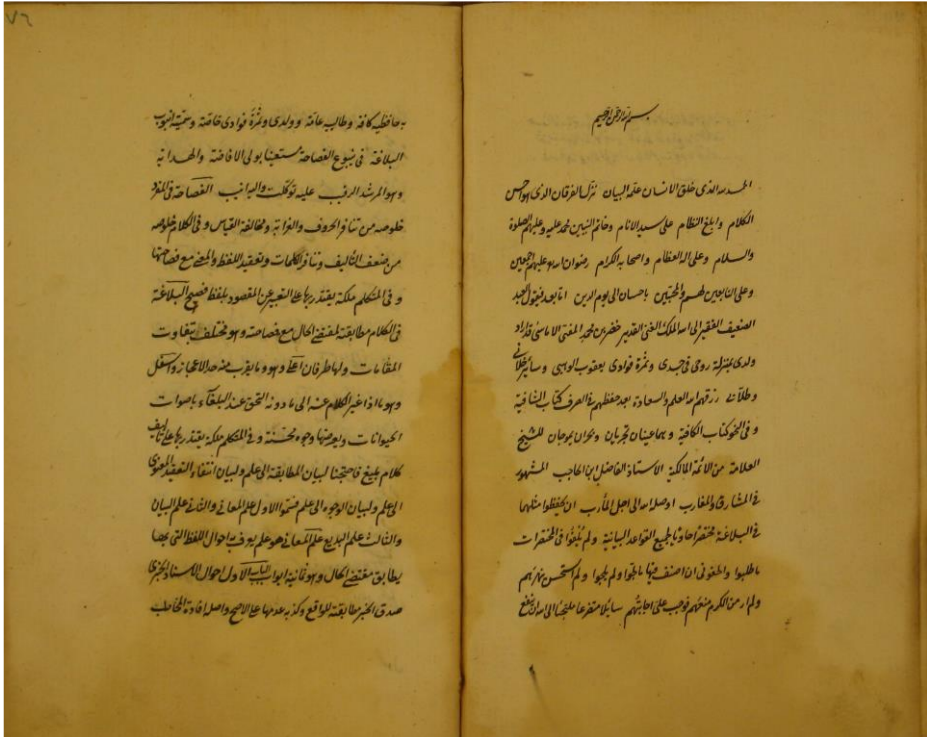 بسم الله الرحمن الرحيم
الحمد لله الذى خلق الانسان علمه البيان نزل الفرقان الذى هو احسن
الكلام وابلغ النظام على سيد الانام وخاتم النبيين محمد عليه وعليهم الصلوة
والسلام وعلى اله العظام واصحابه الكرام رضوان الله عليهم اجمعين
وعلى التابعين لهم والمحبين باحسان الى يوم الدين اما بعد فيقول العبد
الضعيف الفقير الى الله الملك الغنى القدير خضر بن محمد المفتى الاماسى
ولدى بمنزلة روحى فى جسدى وثمرة فوادى يعقوب وسائر خلانى
وطلابى رزقهم الله العلم والسعادة بعد حفظهم فى الصرف كتاب الشافية
وفى النحو كتاب الكافية وهما عينان تجريان وبحران يموجان للشيخ
العلامة من الائمة المالكية الاستاذ الفاضل ابن الحاجب المشهور
فى المشارق والمغارب اوصله الله الى اجل المأرب ان يحفظوا مثلهما
فى البلاغة مختصرا حاويا لجميع القواعد البيانية ولم فى المختصرات
ما طلبوا والحوا فى ان اصنف فيها ولم ولم استحسن
ولم ار من الكرم منعهم فوجب على اجابتهم سايلا متضرعا ملتجئا الى الله ان ينفع
٧٦
به حافظيه كافة وطالبيه عامة وولدى وثمرة فوادى خاصة وسميته انبوب
البلاغة فى ينبوع الفصاحة مستعينا بولى الافاضة والهداية
وهو المرشد الرقيب عليه توكلت واليه انيب الفصاحة فى المفرد
خلوصه من تنافر الحروف والغرابة ومخالفة القياس وفى الكلام خلوصه
من ضعف التأليف وتنافر الكلمات وتعقيد اللفظ والمعنى مع فصاحتها
وفى المتكلم ملكة يقتدر بها على التعبير عن المقصود بلفظ فصيح البلاغة
فى الكلام مطابقته لمقتضى الحال مع فصاحته وهو مختلف بتفاوت
المقامات ولها طرفان اعلى وهو وما يقرب منه حد الاعجاز واسفل
وهو ما اذا غير الكلام عنه الى ما دونه التحق عند البلغاء باصوات
الحيوانات ويتبعها وجوه محسنة وفى المتكلم ملكة يقتدر بها على تأليف
كلام بليغ فاحتجنا لبيان المطابقة الى علم ولبيان انتفاء التعقيد المعنوى
الى علم ولبيان الوجوه الى علم فسموا الاول علم المعانى والثانى علم البيان
والثالث علم البديع علم المعانى هو علم يعرف به احوال اللفظ التى بها
يطابق مقتضى الحال وهو ثمانية ابواب الباب الاول احوال الاسناد الخبرى
صدق الخبر مطابقته للواقع وكذبه عدمها على الاصح واصله افادة المخاطب